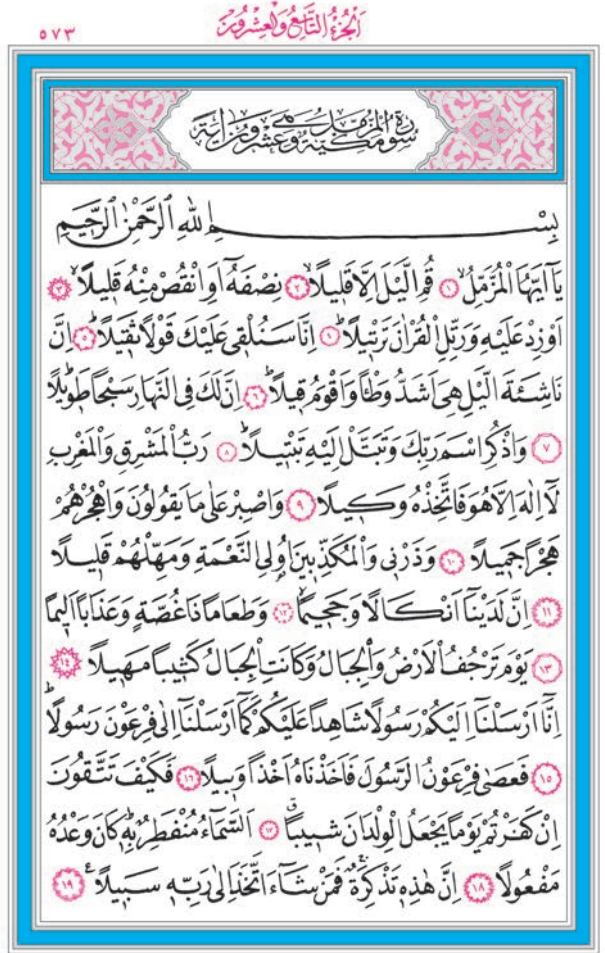 ٥٧٣ اَلْجُزْءُ التَّاسِعُ وَالْعِشْرُونَ
سُورَةُ الْمُزَّمِّلِ مَكِّيَّةٌ وَهِيَ عِشْرُونَ اٰيَةً
بِسْمِ اللّٰهِ الرَّحْمٰنِ الرَّحِيمِ
يَٓا اَيُّهَا الْمُزَّمِّلُۙ ﴿١﴾ قُمِ الَّيْلَ اِلَّا قَلِيلًاۙ ﴿٢﴾ نِصْفَهُٓ اَوِ انْقُصْ مِنْهُ قَلِيلًاۙ ﴿٣﴾
اَوْ زِدْ عَلَيْهِ وَرَتِّلِ الْقُرْاٰنَ تَرْتِيلًاۜ ﴿٤﴾ اِنَّا سَنُلْقِي عَلَيْكَ قَوْلًا ثَقِيلًا ﴿٥﴾ اِنَّ
نَاشِئَةَ الَّيْلِ هِيَ اَشَدُّ وَطْـًٔا وَاَقْوَمُ قِيلًاۜ ﴿٦﴾ اِنَّ لَكَ فِي النَّهَارِ سَبْحًا طَوِيلًاۜ
﴿٧﴾ وَاذْكُرِ اسْمَ رَبِّكَ وَتَبَتَّلْ اِلَيْهِ تَبْتِيلًاۜ ﴿٨﴾ رَبُّ الْمَشْرِقِ وَالْمَغْرِبِ
لَٓا اِلٰهَ اِلَّا هُوَ فَاتَّخِذْهُ وَكِيلًا ﴿٩﴾ وَاصْبِرْ عَلٰى مَا يَقُولُونَ وَاهْجُرْهُمْ
هَجْرًا جَمِيلًا ﴿١٠﴾ وَذَرْنِي وَالْمُكَذِّبِينَ اُو۬لِي النَّعْمَةِ وَمَهِّلْهُمْ قَلِيلًا
﴿١١﴾ اِنَّ لَدَيْنَٓا اَنْكَالًا وَجَحِيمًاۙ ﴿١٢﴾ وَطَعَامًا ذَا غُصَّةٍ وَعَذَابًا اَلِيمًا
﴿١٣﴾ يَوْمَ تَرْجُفُ الْاَرْضُ وَالْجِبَالُ وَكَانَتِ الْجِبَالُ كَثِيبًا مَهِيلًا ﴿١٤﴾
اِنَّٓا اَرْسَلْنَٓا اِلَيْكُمْ رَسُولًا شَاهِدًا عَلَيْكُمْ كَمَٓا اَرْسَلْنَٓا اِلٰى فِرْعَوْنَ رَسُولًاۜ
﴿١٥﴾ فَعَصٰى فِرْعَوْنُ الرَّسُولَ فَاَخَذْنَاهُ اَخْذًا وَبِيلًا ﴿١٦﴾ فَكَيْفَ تَتَّقُونَ
اِنْ كَفَرْتُمْ يَوْمًا يَجْعَلُ الْوِلْدَانَ شِيبًاۗ ﴿١٧﴾ اَلسَّمَٓاءُ مُنْفَطِرٌ بِهِۜ كَانَ وَعْدُهُ
مَفْعُولًا ﴿١٨﴾ اِنَّ هٰذِهِ تَذْكِرَةٌۚ فَمَنْ شَٓاءَ اتَّخَذَ اِلٰى رَبِّهِ سَبِيلًا۟ ﴿١٩﴾